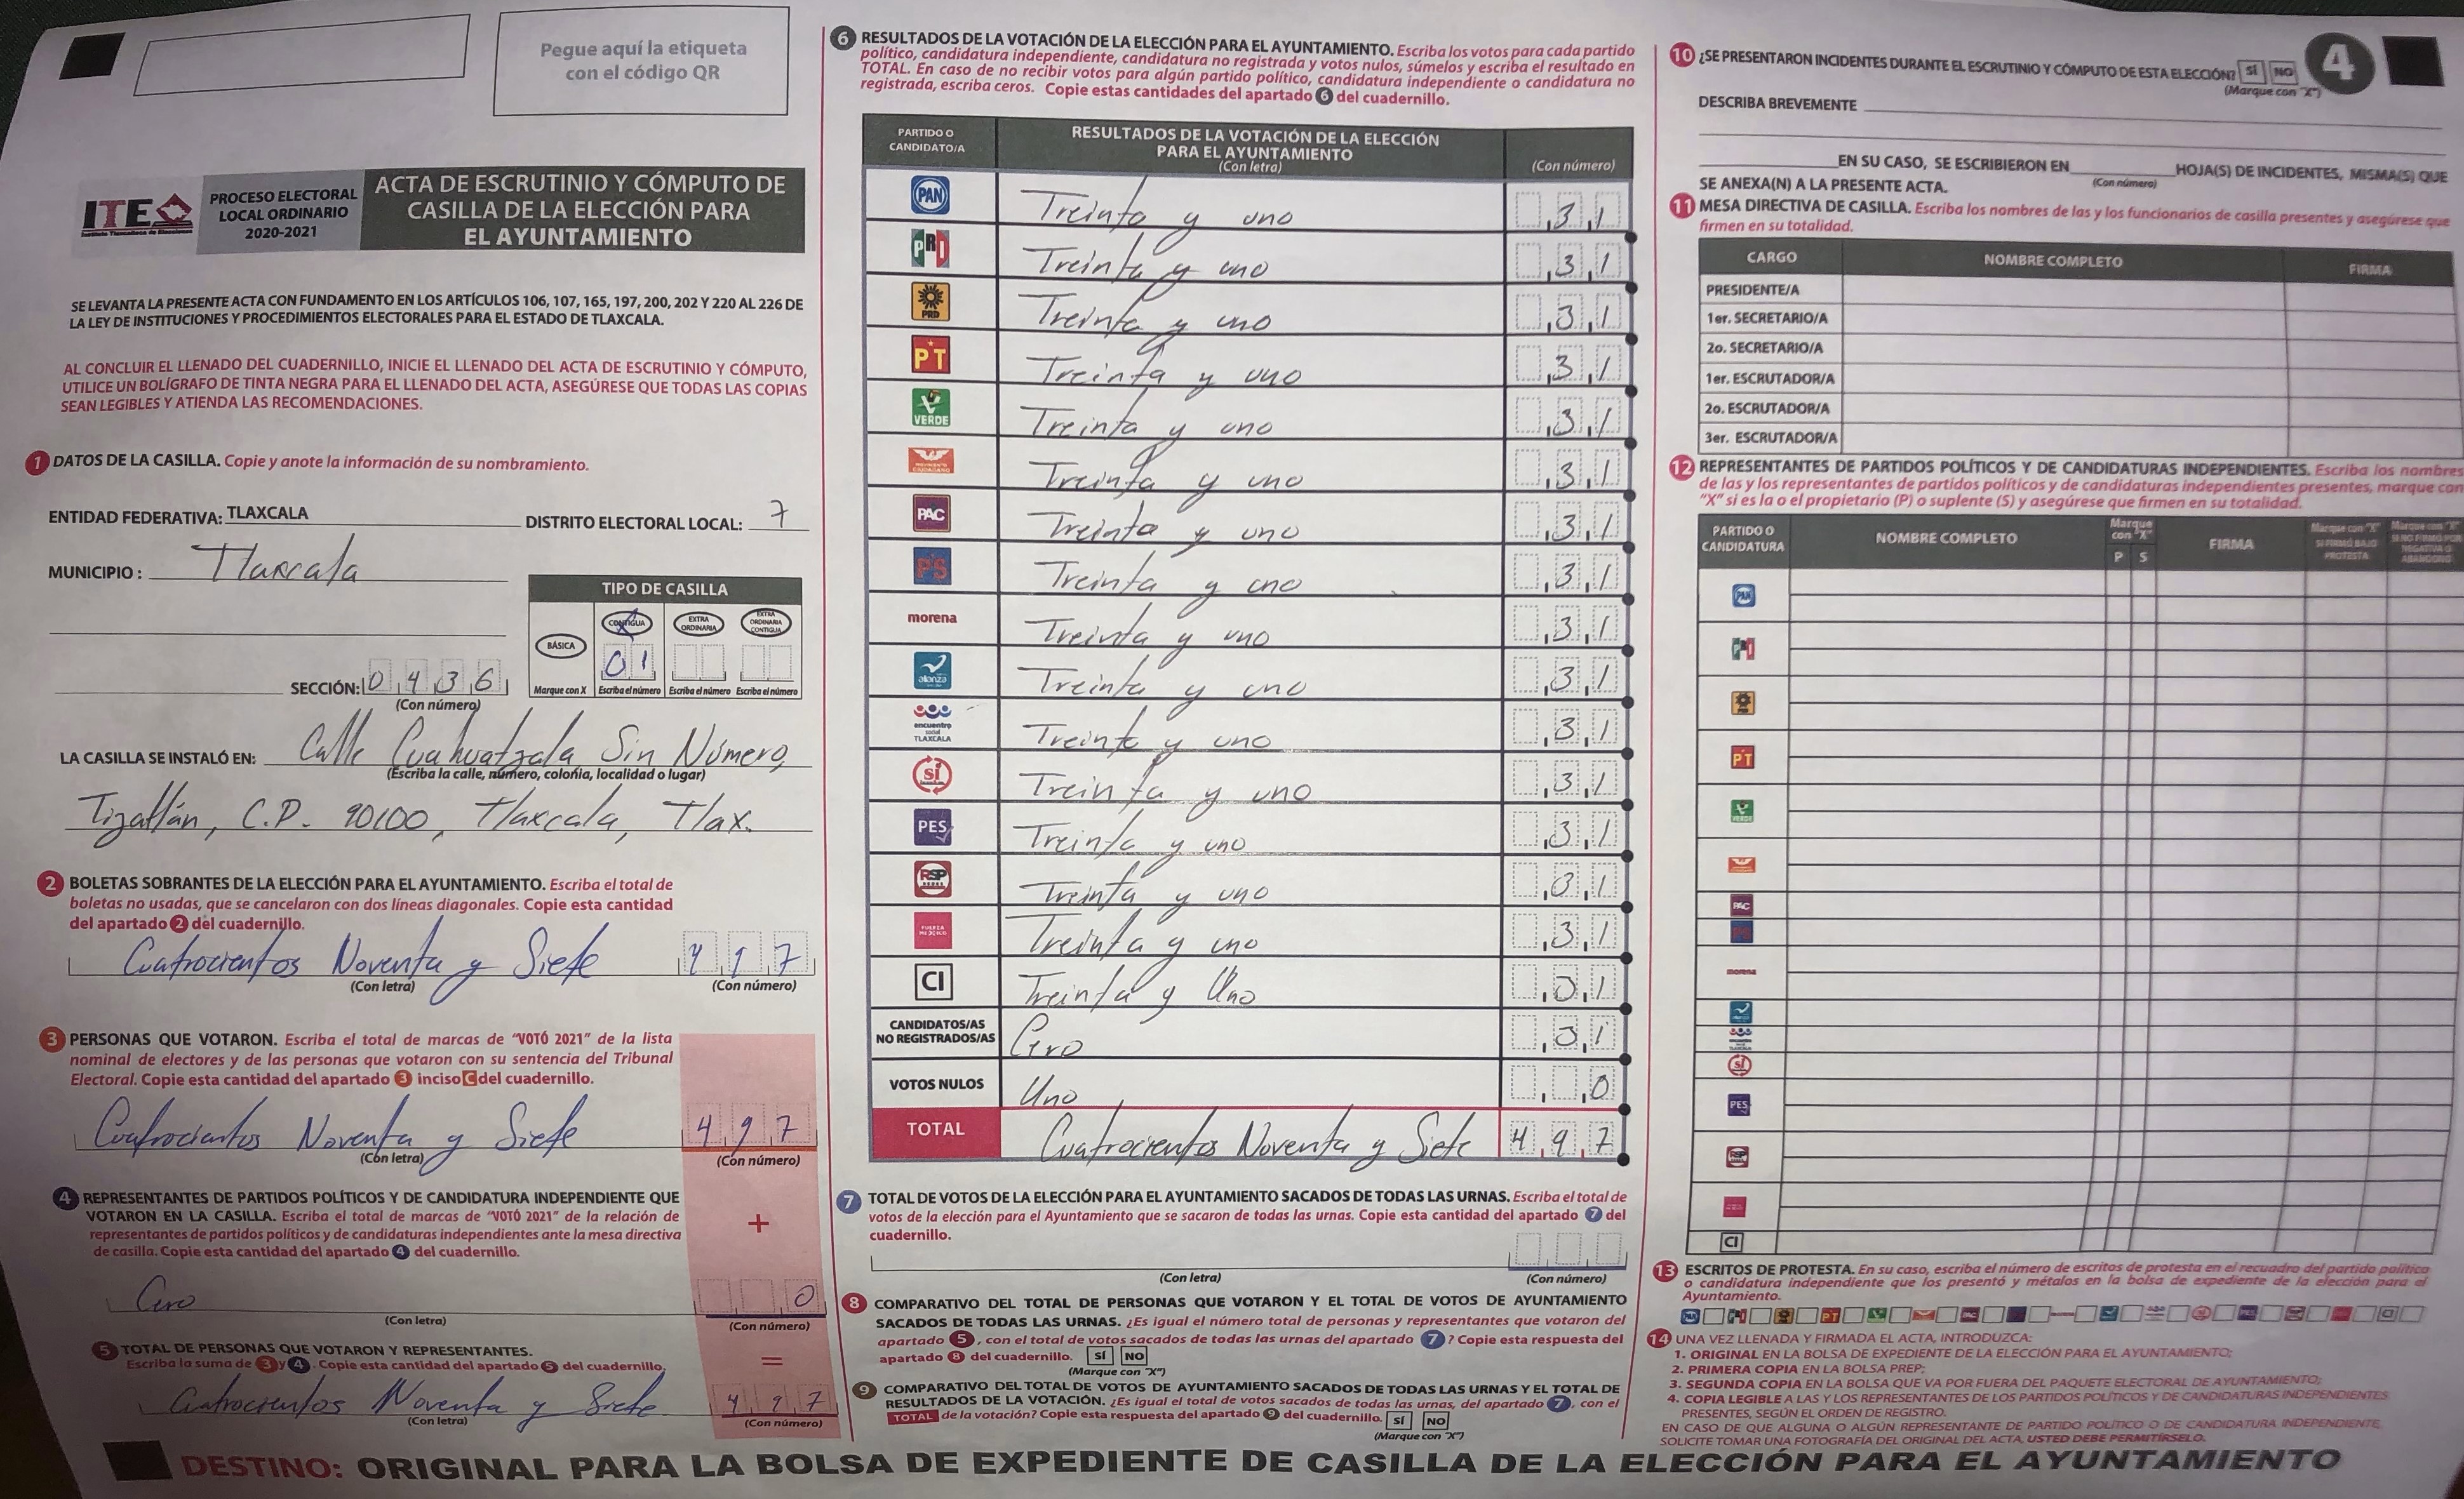 Pegue aquí la etiqueta
con el código QR
ITE
Instituto Tlaxcalteca de Elecciones
PROCESO ELECTORAL
LOCAL ORDINARIO
2020-2021
ACTA DE ESCRUTINIO Y CÓMPUTO DE
CASILLA DE LA ELECCIÓN PARA
EL AYUNTAMIENTO
SE LEVANTA LA PRESENTE ACTA CON FUNDAMENTO EN LOS ARTÍCULOS 106, 107, 165, 197, 200, 202 Y 220 AL 226 DE
LA LEY DE INSTITUCIONES Y PROCEDIMIENTOS ELECTORALES PARA EL ESTADO DE TLAXCALA.
AL CONCLUIR EL LLENADO DEL CUADERNILLO, INICIE EL LLENADO DEL ACTA DE ESCRUTINIO Y CÓMPUTO,
UTILICE UN BOLÍGRAFO DE TINTA NEGRA PARA EL LLENADO DEL ACTA, ASEGÚRESE QUE TODAS LAS COPIAS
SEAN LEGIBLES Y ATIENDA LAS RECOMENDACIONES.
1 DATOS DE LA CASILLA. Copie y anote la información de su nombramiento.
ENTIDAD FEDERATIVA: TLAXCALA DISTRITO ELECTORAL LOCAL: 7
MUNICIPIO : Tlaxcala
TIPO DE CASILLA
BÁSICA CONTIGUA EXTRA ORDINARIA EXTRA ORDINARIA CONTIGUA
01
Marque con X Escriba el número Escriba el número Escriba el número
SECCIÓN: 0436
(Con número)
LA CASILLA SE INSTALÓ EN: Calle Cuahuatzala Sin Número,
(Escriba la calle, número, colonia, localidad o lugar)
Tizatlán, C.P. 90100, Tlaxcala, Tlax.
2 BOLETAS SOBRANTES DE LA ELECCIÓN PARA EL AYUNTAMIENTO. Escriba el total de
boletas no usadas, que se cancelaron con dos líneas diagonales. Copie esta cantidad
del apartado 2 del cuadernillo.
Cuatrocientos Noventa y Siete 497
(Con letra) (Con número)
3 PERSONAS QUE VOTARON. Escriba el total de marcas de "VOTÓ 2021" de la lista
nominal de electores y de las personas que votaron con su sentencia del Tribunal
Electoral. Copie esta cantidad del apartado 3 inciso C del cuadernillo.
Cuatrocientos Noventa y Siete 497
(Con letra) (Con número)
4 REPRESENTANTES DE PARTIDOS POLÍTICOS Y DE CANDIDATURA INDEPENDIENTE QUE
VOTARON EN LA CASILLA. Escriba el total de marcas de "VOTÓ 2021" de la relación de
representantes de partidos políticos y de candidaturas independientes ante la mesa directiva
de casilla. Copie esta cantidad del apartado 4 del cuadernillo.
+
Cero 0
(Con letra) (Con número)
5 TOTAL DE PERSONAS QUE VOTARON Y REPRESENTANTES.
Escriba la suma de 3 y 4. Copie esta cantidad del apartado 5 del cuadernillo.
=
Cuatrocientos Noventa y Siete 497
(Con letra) (Con número)
6 RESULTADOS DE LA VOTACIÓN DE LA ELECCIÓN PARA EL AYUNTAMIENTO. Escriba los votos para cada partido
político, candidatura independiente, candidatura no registrada y votos nulos, súmelos y escriba el resultado en
TOTAL. En caso de no recibir votos para algún partido político, candidatura independiente o candidatura no
registrada, escriba ceros. Copie estas cantidades del apartado 6 del cuadernillo.
PARTIDO O
CANDIDATO/A
RESULTADOS DE LA VOTACIÓN DE LA ELECCIÓN
PARA EL AYUNTAMIENTO
(Con letra) (Con número)
PAN Treinta y uno 31
PRI Treinta y uno 31
PRD Treinta y uno 31
PT Treinta y uno 31
VERDE Treinta y uno 31
MOVIMIENTO CIUDADANO Treinta y uno 31
PAC Treinta y uno 31
PS Treinta y uno 31
morena Treinta y uno 31
alianza Treinta y uno 31
encuentro social TLAXCALA Treinta y uno 31
sí Treinta y uno 31
PES Treinta y uno 31
RSP Treinta y uno 31
FUERZA MEXICO Treinta y uno 31
CI Treinta y Uno 31
CANDIDATOS/AS
NO REGISTRADOS/AS Cero 31
VOTOS NULOS Uno 0
TOTAL Cuatrocientos Noventa y Siete 497
7 TOTAL DE VOTOS DE LA ELECCIÓN PARA EL AYUNTAMIENTO SACADOS DE TODAS LAS URNAS. Escriba el total de
votos de la elección para el Ayuntamiento que se sacaron de todas las urnas. Copie esta cantidad del apartado 7 del
cuadernillo.
(Con letra) (Con número)
8 COMPARATIVO DEL TOTAL DE PERSONAS QUE VOTARON Y EL TOTAL DE VOTOS DE AYUNTAMIENTO
SACADOS DE TODAS LAS URNAS. ¿Es igual el número total de personas y representantes que votaron del
apartado 5, con el total de votos sacados de todas las urnas del apartado 7? Copie esta respuesta del
apartado 8 del cuadernillo. SÍ NO
(Marque con "X")
9 COMPARATIVO DEL TOTAL DE VOTOS DE AYUNTAMIENTO SACADOS DE TODAS LAS URNAS Y EL TOTAL DE
RESULTADOS DE LA VOTACIÓN. ¿Es igual el total de votos sacados de todas las urnas, del apartado 7, con el
TOTAL de la votación? Copie esta respuesta del apartado 9 del cuadernillo. SÍ NO
(Marque con "X")
10 ¿SE PRESENTARON INCIDENTES DURANTE EL ESCRUTINIO Y CÓMPUTO DE ESTA ELECCIÓN? SÍ NO 4
(Marque con "X")
DESCRIBA BREVEMENTE
EN SU CASO, SE ESCRIBIERON EN HOJA(S) DE INCIDENTES, MISMA(S) QUE
(Con número)
SE ANEXA(N) A LA PRESENTE ACTA.
11 MESA DIRECTIVA DE CASILLA. Escriba los nombres de las y los funcionarios de casilla presentes y asegúrese que
firmen en su totalidad.
CARGO NOMBRE COMPLETO FIRMA
PRESIDENTE/A
1er. SECRETARIO/A
2o. SECRETARIO/A
1er. ESCRUTADOR/A
2o. ESCRUTADOR/A
3er. ESCRUTADOR/A
12 REPRESENTANTES DE PARTIDOS POLÍTICOS Y DE CANDIDATURAS INDEPENDIENTES. Escriba los nombres
de las y los representantes de partidos políticos y de candidaturas independientes presentes, marque con
"X" si es la o el propietario (P) o suplente (S) y asegúrese que firmen en su totalidad.
PARTIDO O
CANDIDATURA
NOMBRE COMPLETO
Marque
con "X"
P S
FIRMA
Marque con "X"
SI FIRMÓ BAJO
PROTESTA
Marque con "X"
SI NO FIRMÓ POR
NEGATIVA O
ABANDONO
PAN
PRI
PRD
PT
VERDE
PAC
PS
morena
sí
PES
RSP
CI
13 ESCRITOS DE PROTESTA. En su caso, escriba el número de escritos de protesta en el recuadro del partido político
o candidatura independiente que los presentó y métalos en la bolsa de expediente de la elección para el
Ayuntamiento.
14 UNA VEZ LLENADA Y FIRMADA EL ACTA, INTRODUZCA:
1. ORIGINAL EN LA BOLSA DE EXPEDIENTE DE LA ELECCIÓN PARA EL AYUNTAMIENTO;
2. PRIMERA COPIA EN LA BOLSA PREP;
3. SEGUNDA COPIA EN LA BOLSA QUE VA POR FUERA DEL PAQUETE ELECTORAL DE AYUNTAMIENTO;
4. COPIA LEGIBLE A LAS Y LOS REPRESENTANTES DE LOS PARTIDOS POLÍTICOS Y DE CANDIDATURAS INDEPENDIENTES
PRESENTES, SEGÚN EL ORDEN DE REGISTRO.
EN CASO DE QUE ALGUNA O ALGÚN REPRESENTANTE DE PARTIDO POLÍTICO O DE CANDIDATURA INDEPENDIENTE,
SOLICITE TOMAR UNA FOTOGRAFÍA DEL ORIGINAL DEL ACTA, USTED DEBE PERMITÍRSELO.
DESTINO: ORIGINAL PARA LA BOLSA DE EXPEDIENTE DE CASILLA DE LA ELECCIÓN PARA EL AYUNTAMIENTO